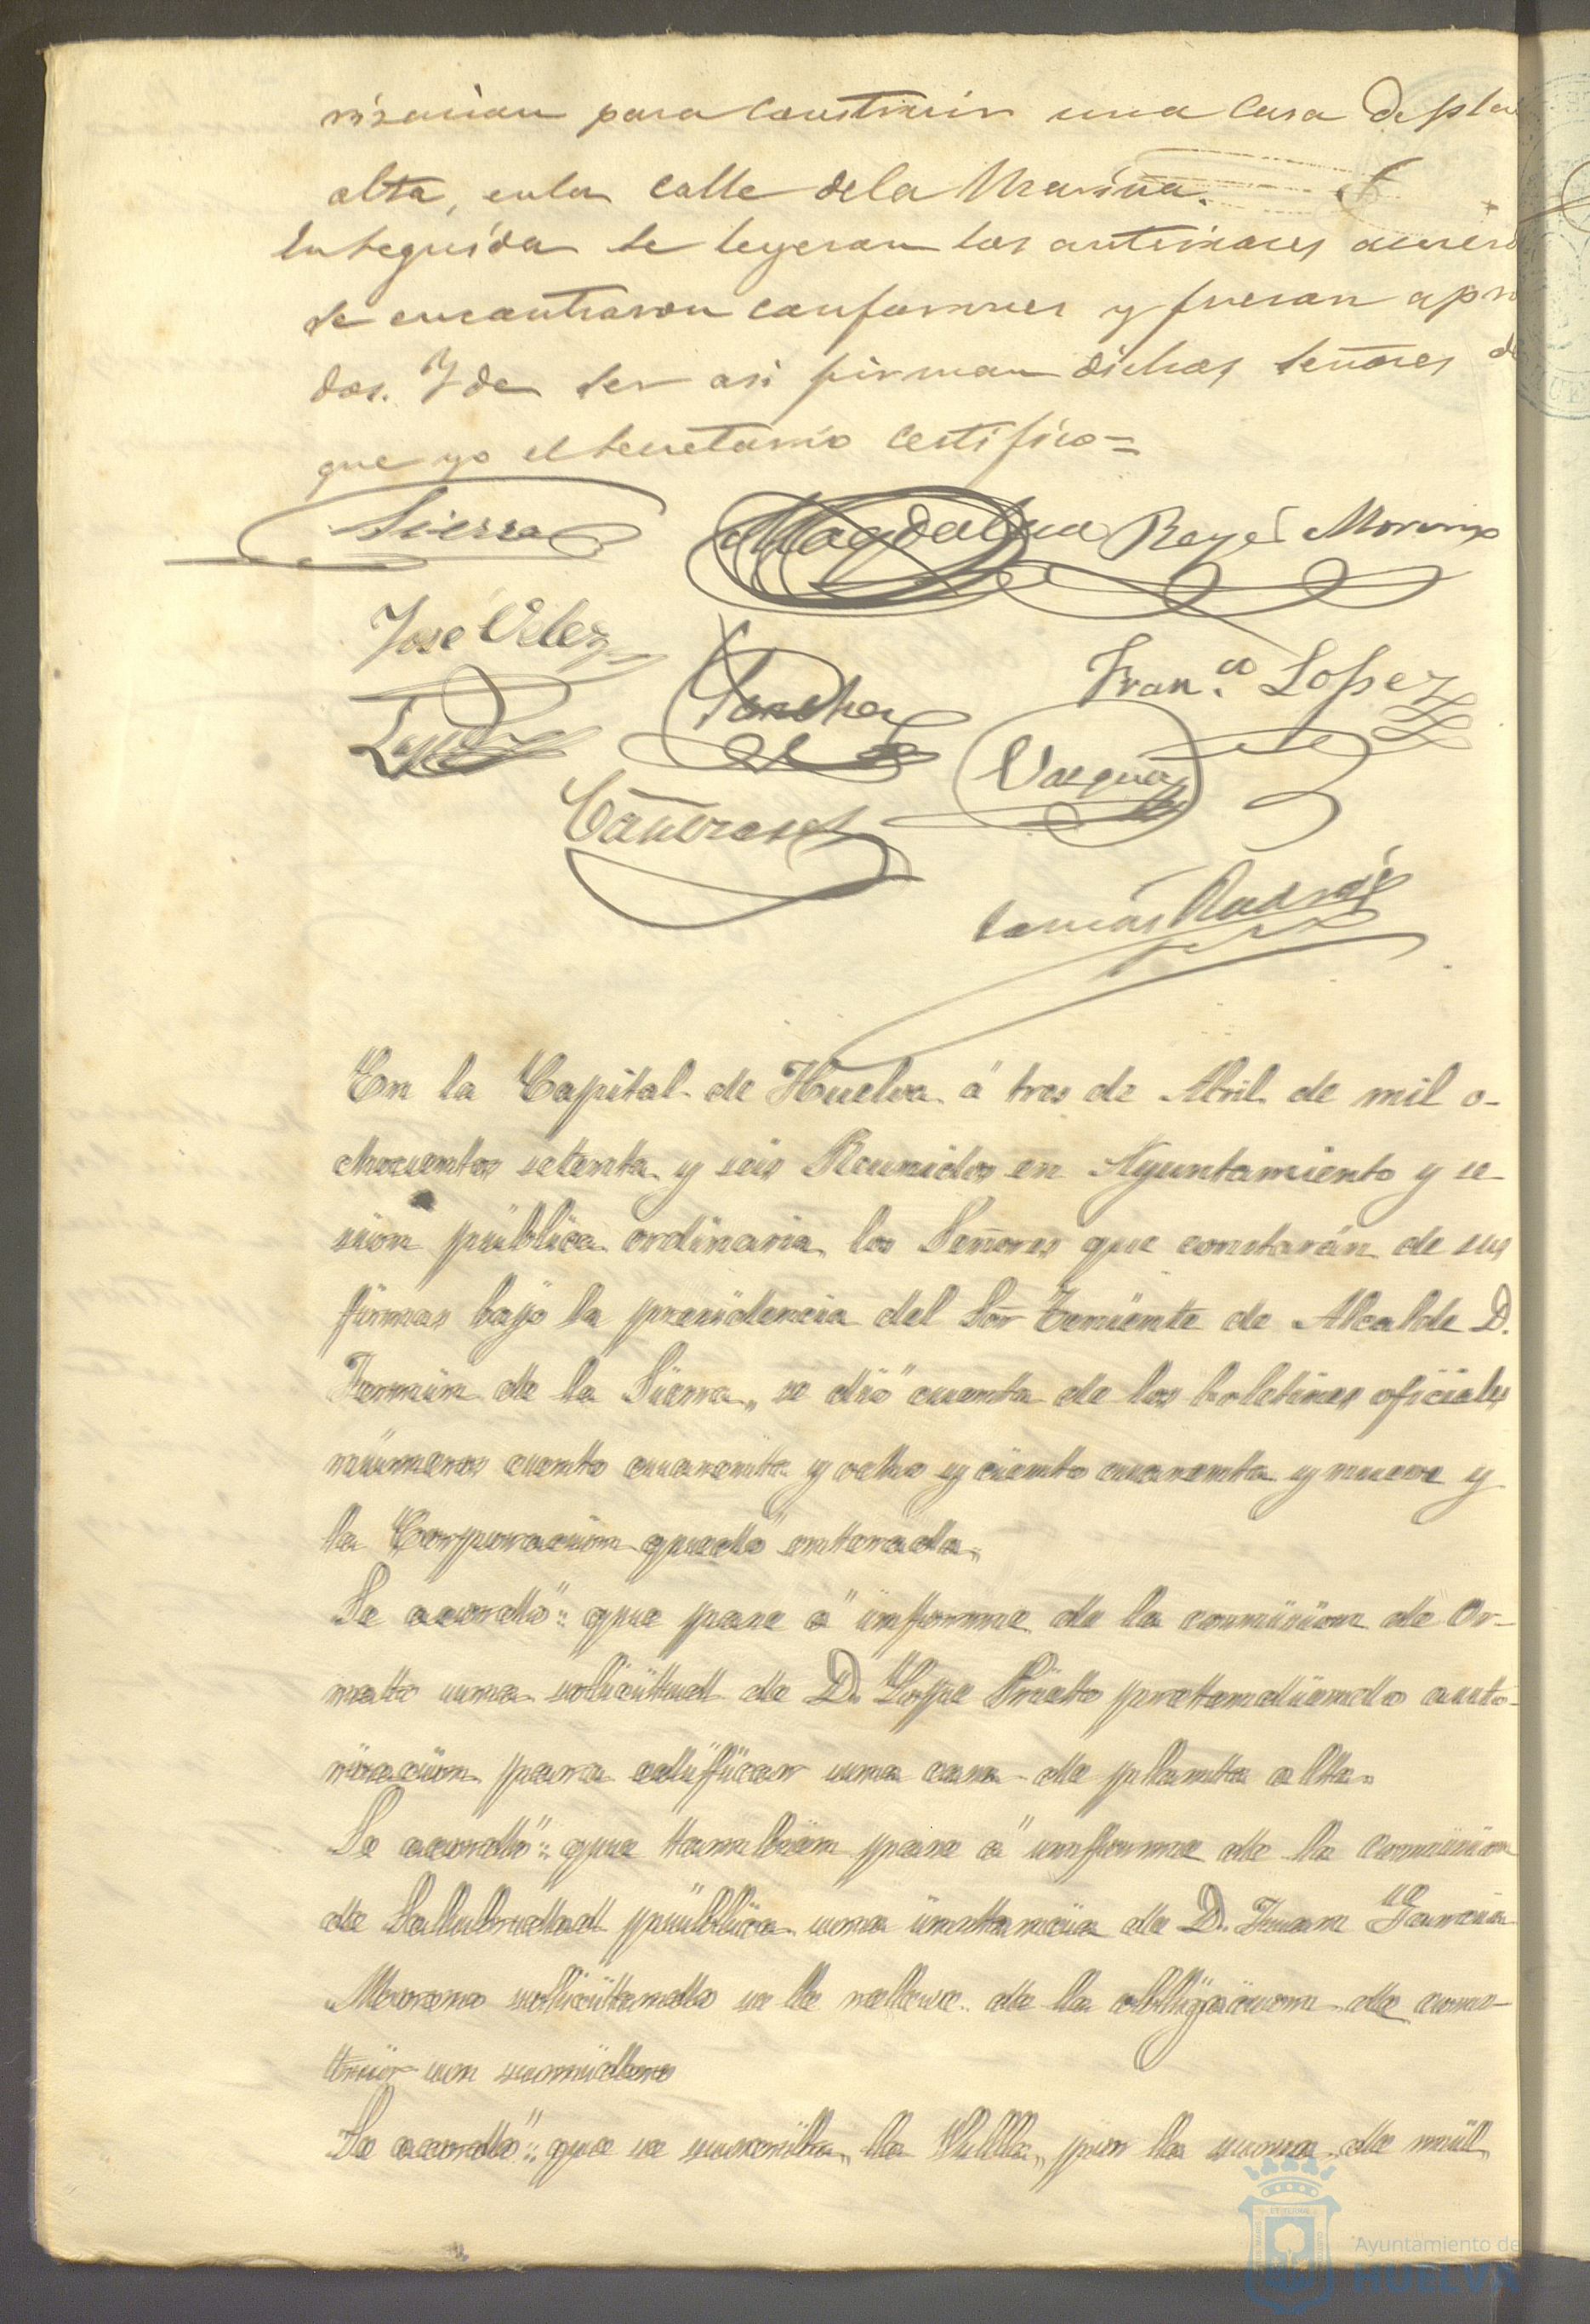 rizacion para construir una casa de pla
alta, en la calle de la Marina.
Enseguida se leyeron los anteriores acuerd
se encontraron conformes y fueron apro
dos. Y de ser asi firman dichos señores de
que yo el Secretario certifico=
Sierra Magdalena Reyes Moreno
José Velez
Sanchez Fran.co Lopez
Lopez Vazquez
Cañizares
Tomás
En la Capital de Huelva á tres de Abril de mil o-
chocientos setenta y seis Reunidos en Ayuntamiento y se-
sion pública ordinaria los Señores que constarán de sus
firmas bajo la presidencia del Sor Teniente de Alcalde D.
Fermin de la Sierra, se dió cuenta de los boletines oficiales
números ciento cuarenta y ocho y ciento cuarenta y nueve y
la Corporacion quedó enterada.
Se acordó: que pase á informe de la comision de Or-
nato una solicitud de D. Lope Prieto pretendiendo auto-
rizacion para edificar una casa de planta alta.
Se acordó: que tambien pase á informe de la Comision
de Salubridad pública una instancia de D. Juan Garcia
Moreno solicitando se le releve de la obligacion de cons-
truir un sumidero
Se acordó: que se suscriba, la Villa, por la suma de mil,
Ayuntamiento de
HUELVA